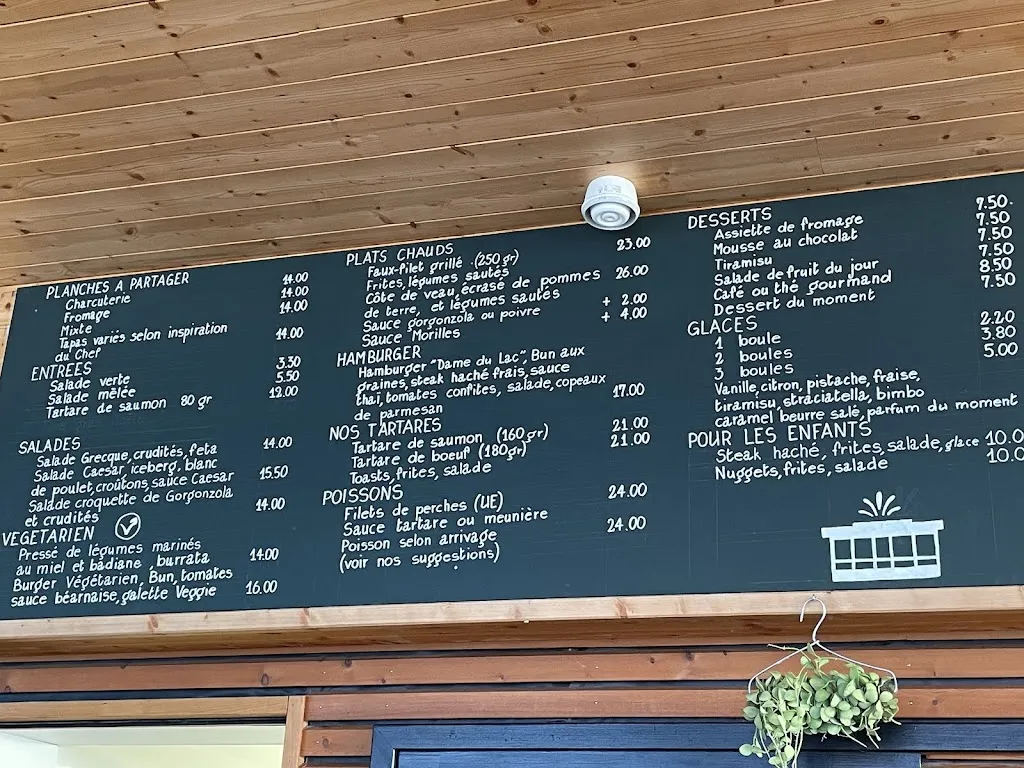 PLANCHES A PARTAGER
Charcuterie 14.00
Fromage 14.00
Mixte 14.00
Tapas variés selon inspiration
du Chef 14.00
ENTRÉES
Salade verte 3.30
Salade mêlée 5.50
Tartare de saumon 80 gr 12.00
SALADES
Salade Grecque, crudités, feta 14.00
Salade Caesar, iceberg, blanc
de poulet, croûtons, sauce Caesar 15.50
Salade croquette de Gorgonzola
et crudités 14.00
VEGETARIEN
Pressé de légumes marinés
au miel et badiane, burrata 14.00
Burger Végétarien, Bun, tomates
sauce béarnaise, galette Veggie 16.00
PLATS CHAUDS
Faux-filet grillé (250 gr) 23.00
Frites, légumes sautés
Côte de veau, écrasé de pommes 26.00
de terre, et légumes sautés
Sauce gorgonzola ou poivre + 2.00
Sauce Morilles + 4.00
HAMBURGER
Hamburger "Dame du Lac", Bun aux
graines, steak haché frais, sauce
thaï, tomates confites, salade, copeaux
de parmesan 17.00
NOS TARTARES
Tartare de saumon (160 gr) 21.00
Tartare de boeuf (180 gr) 21.00
Toasts, frites, salade
POISSONS
Filets de perches (UE) 24.00
Sauce tartare ou meunière
Poisson selon arrivage 24.00
(voir nos suggestions)
DESSERTS
Assiette de fromage 7.50
Mousse au chocolat 7.50
Tiramisu 7.50
Salade de fruit du jour 7.50
Café ou thé gourmand 8.50
Dessert du moment 7.50
GLACES
1 boule 2.20
2 boules 3.80
3 boules 5.00
Vanille, citron, pistache, fraise,
tiramisu, straciatella, bimbo
caramel beurre salé, parfum du moment
POUR LES ENFANTS
Steak haché, frites, salade, glace 10.0
Nuggets, frites, salade 10.0